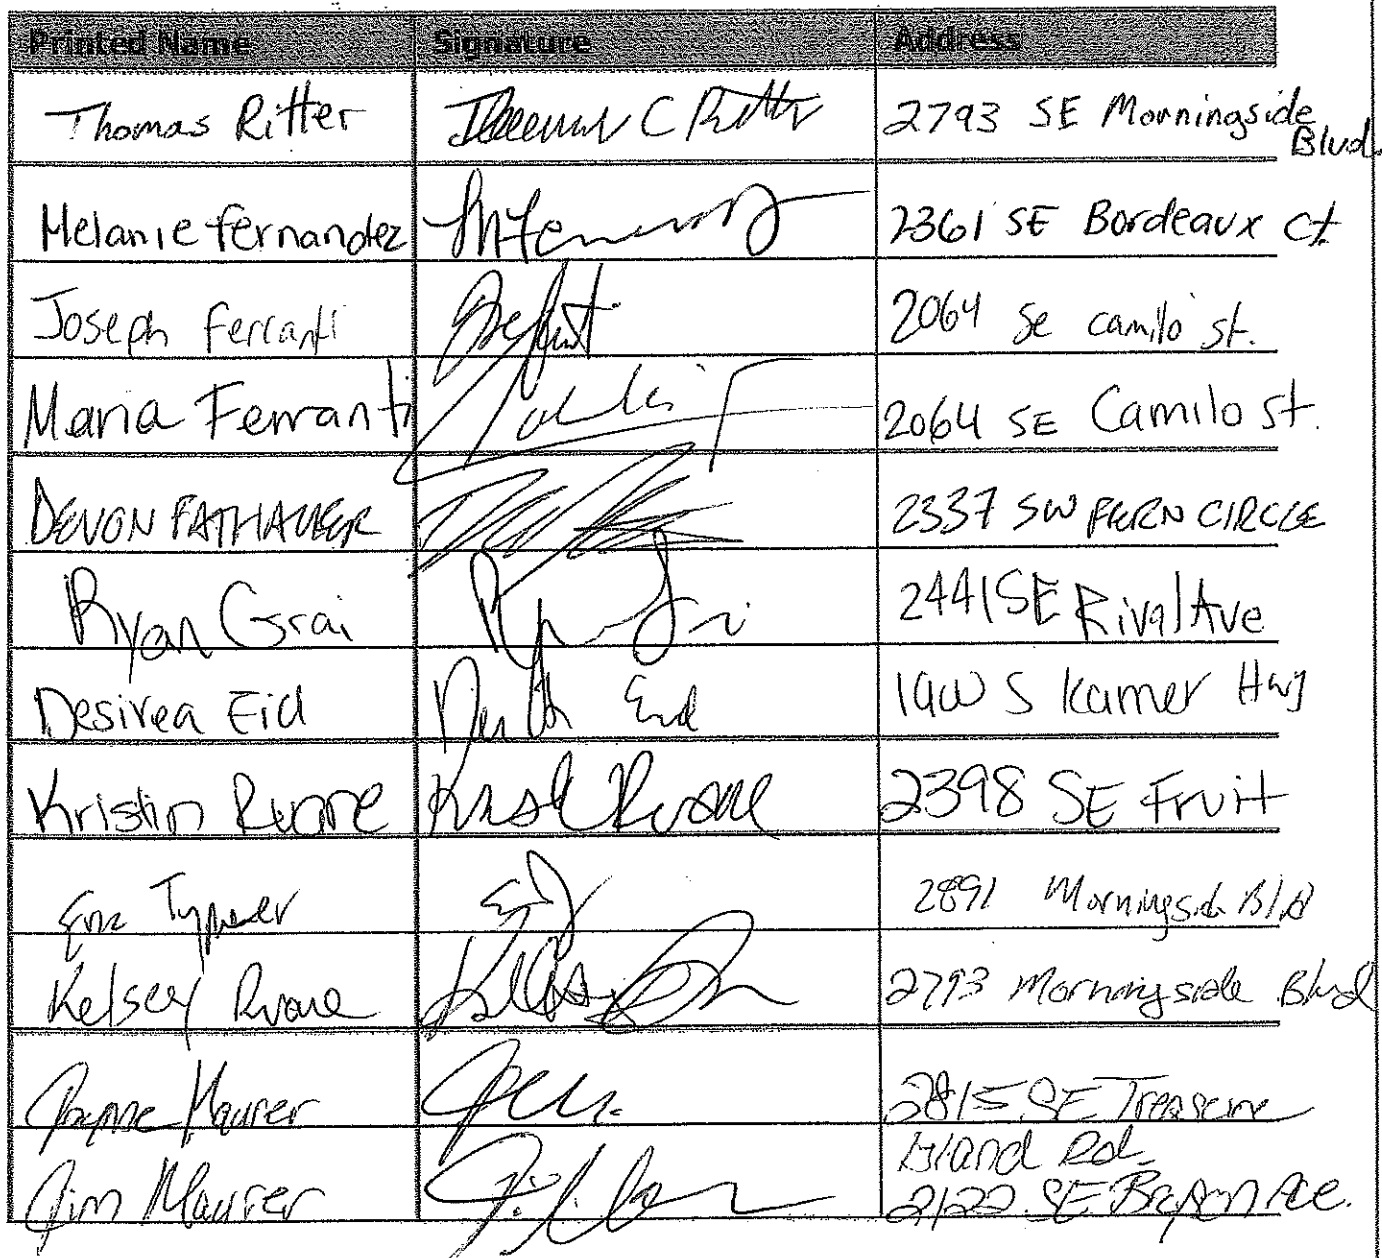 Printed Name Signature Address
Thomas Ritter Thomas C Ritter 2793 SE Morningside
Blvd.
Melanie fernandez MFernandez 2361 SE Bordeaux Ct
Joseph Ferranti 2064 Se camilo st.
Maria Ferranti 2064 SE Camilo St.
DEVON FATHAUER 2337 SW FERN CIRCLE
Ryan Grai 2441 SE Rival Ave
Desirea Eid Eid S Hwy
Kristin Ruane Ruane 2398 SE Fruit
Eric 2891 Morningside Blvd
Kelsey Ruane 2793 Morningside Blvd
Joanne Maurer 2815 SE Treasure
Island Rd.
Jim Maurer 2122 SE Ave.